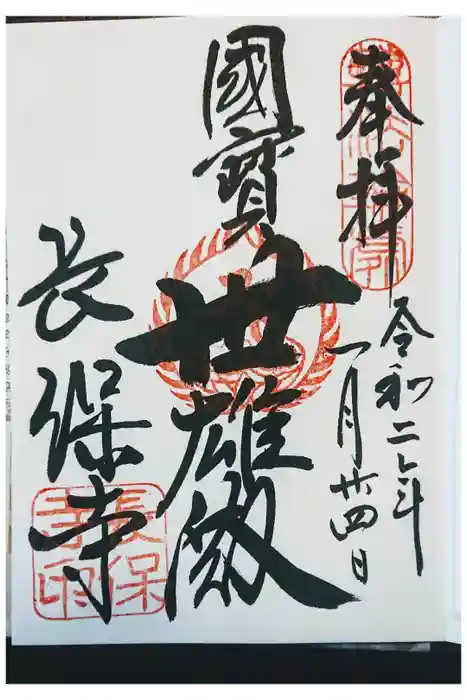 奉拝
令和二年
一月廿四日
國寶
世雄殿
長保寺
長保寺印